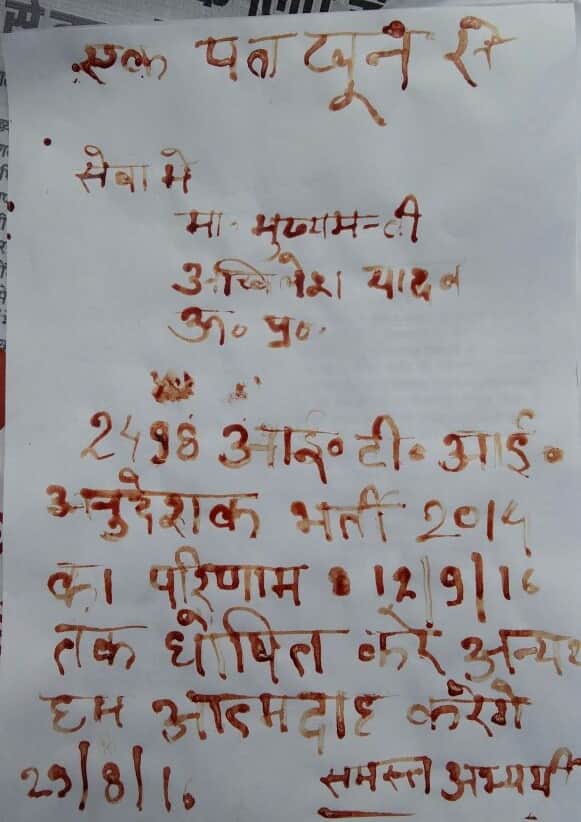 एक पत्र खून से
सेवा में
मा. मुख्यमन्त्री
अखिलेश यादव
उ० प्र०
2498 आई० टी० आई०
अनुदेशक भर्ती 2014
का परिणाम 12/9/16
तक घोषित करें अन्यथा
हम आत्मदाह करेंगे
29/8/16
समस्त अभ्यर्थी